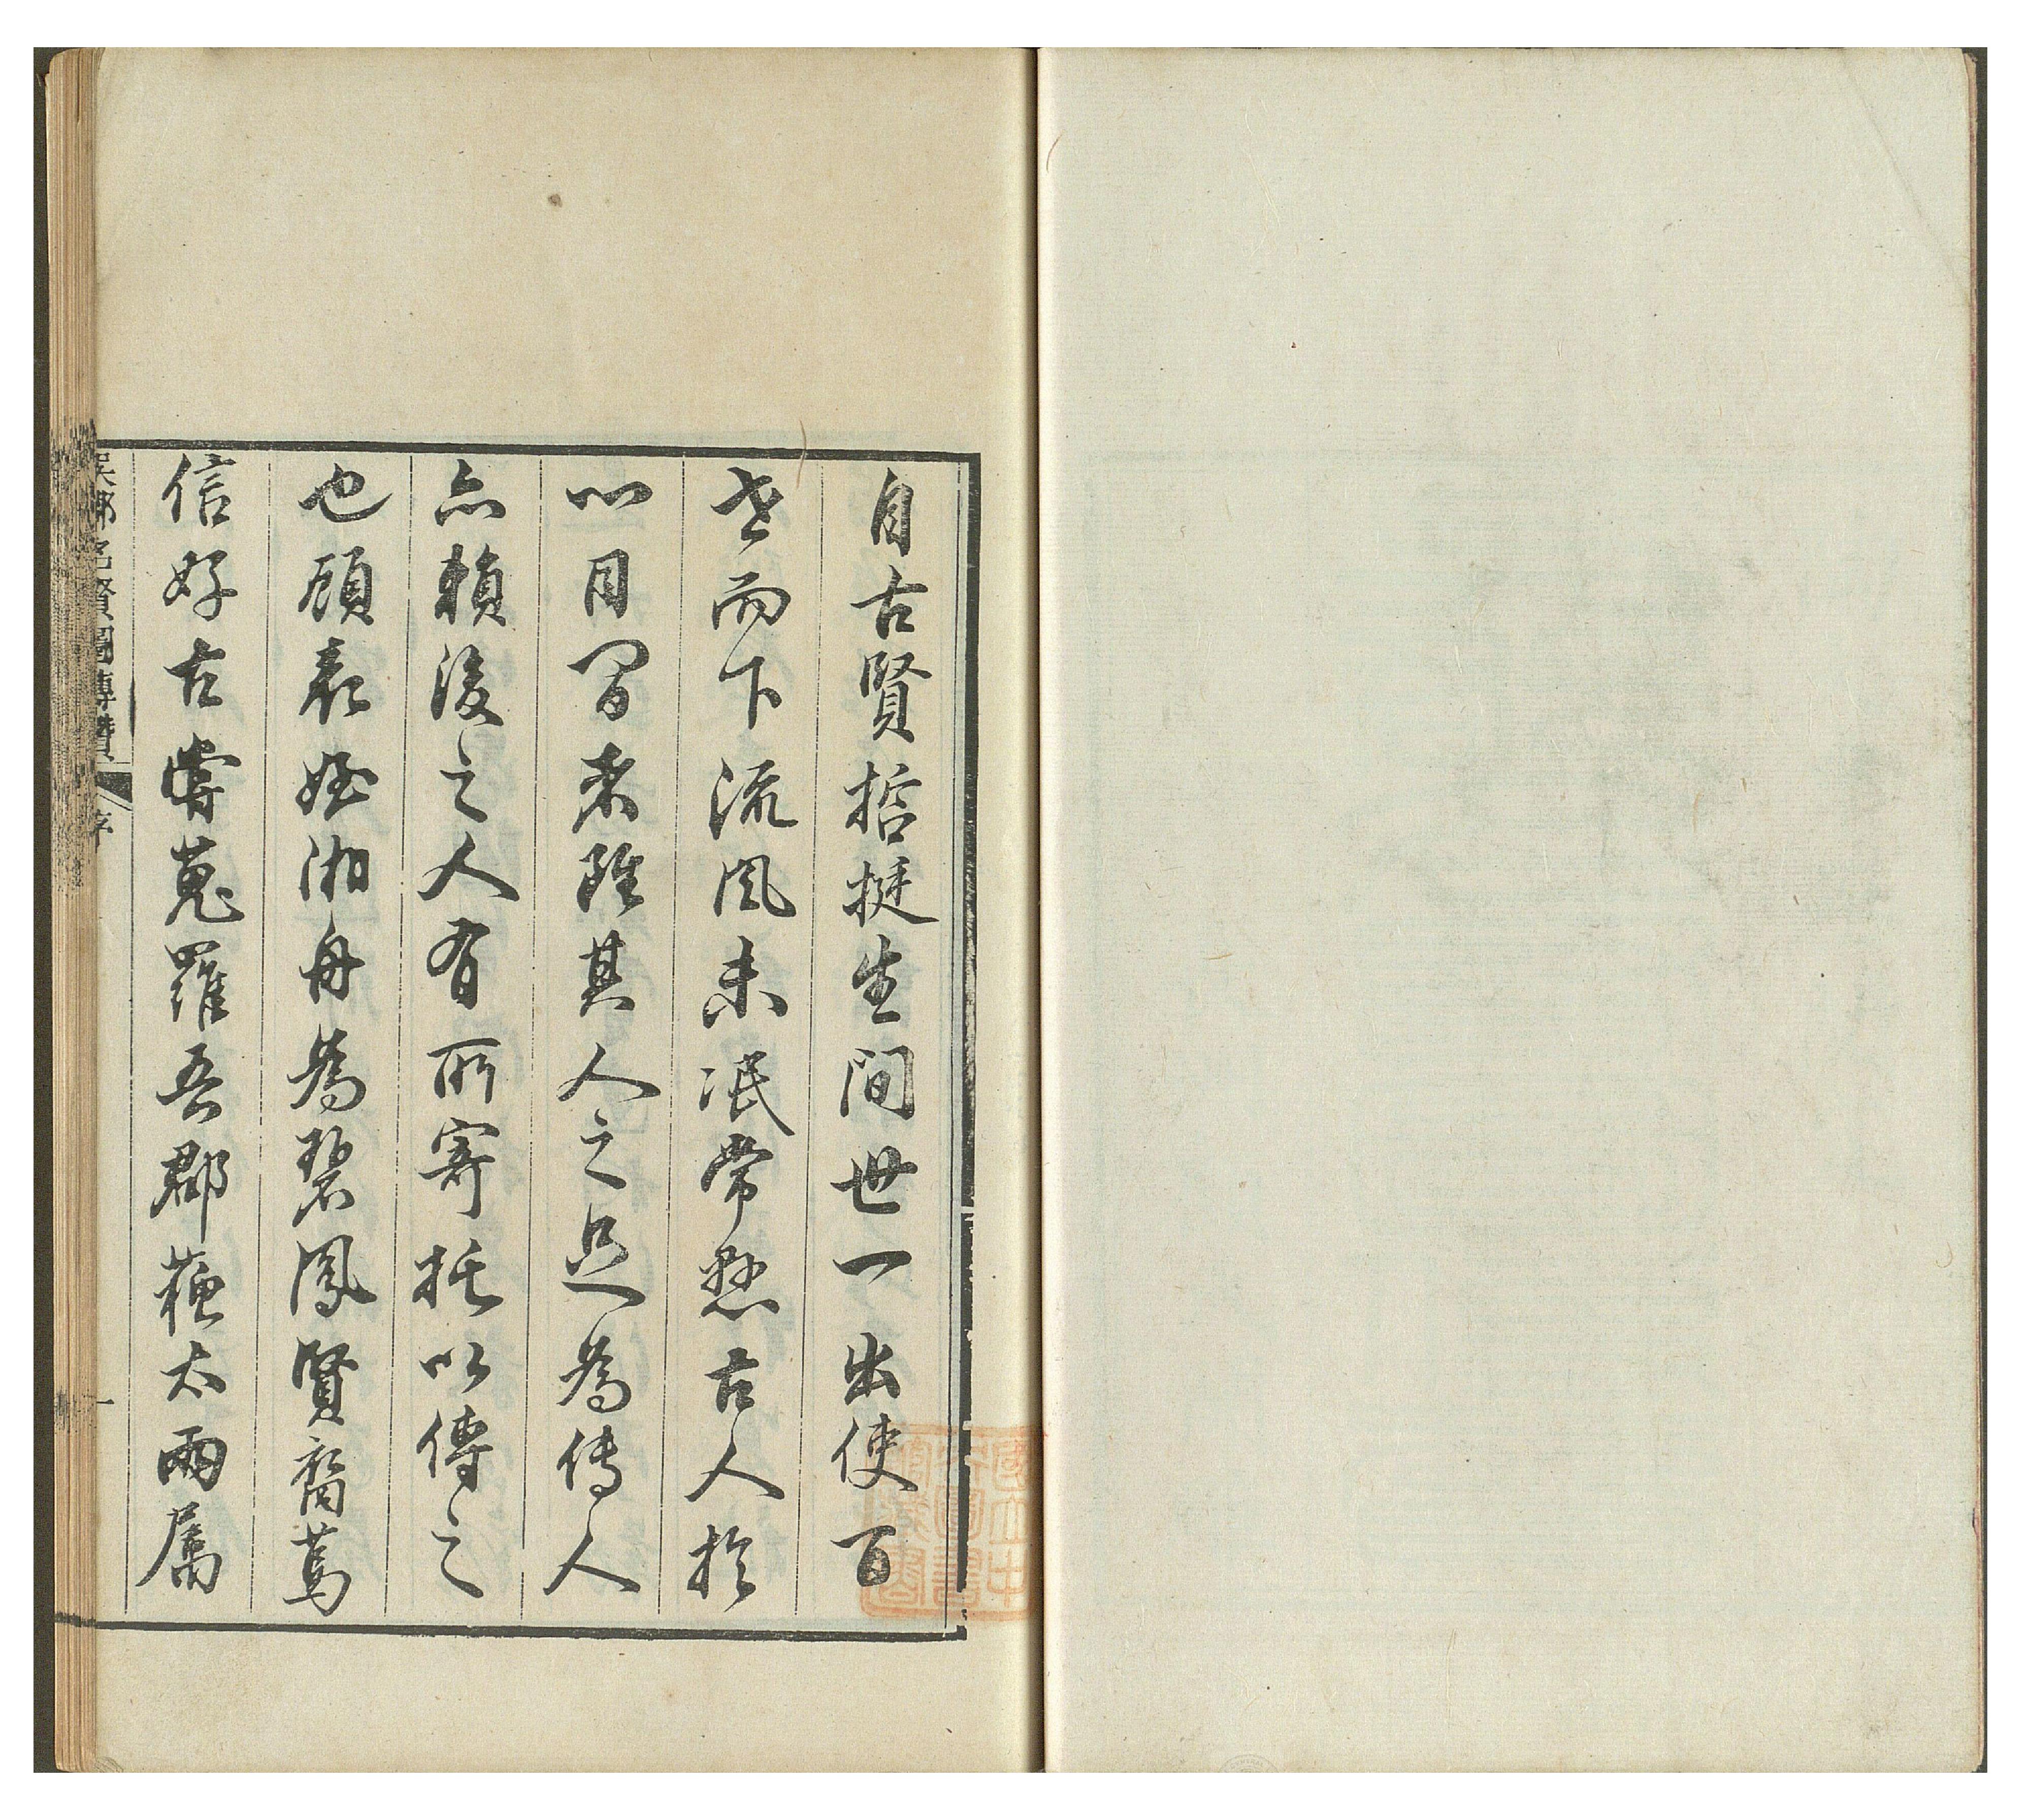 自古賢哲挺生間世一出使百
世而下流風未泯常懸古人於
心目間者雖其人之足為傳人
亦賴後之人有所寄托以傳之
也顧表姪湘舟為碧鳳賢裔篤
信好古嘗蒐羅吾郡蘓太兩属
吳郡名賢圖傳贊 序 一
國立中央圖書館藏書